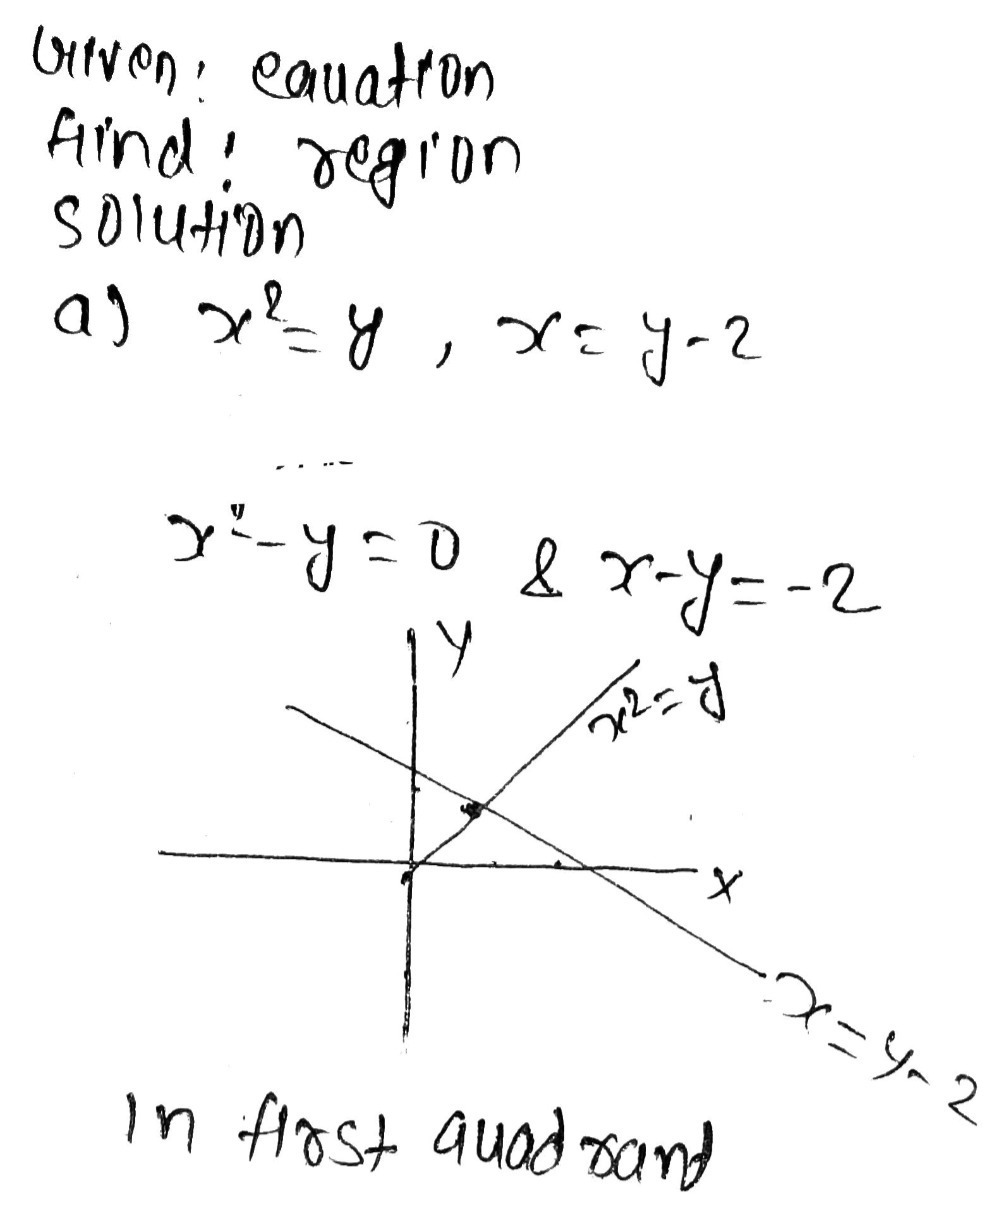 Given: equation
Find: region
Solution
a) x² = y , x = y - 2
x² - y = 0 & x - y = -2
y
x² = y
x
x = y - 2
In first quadrant